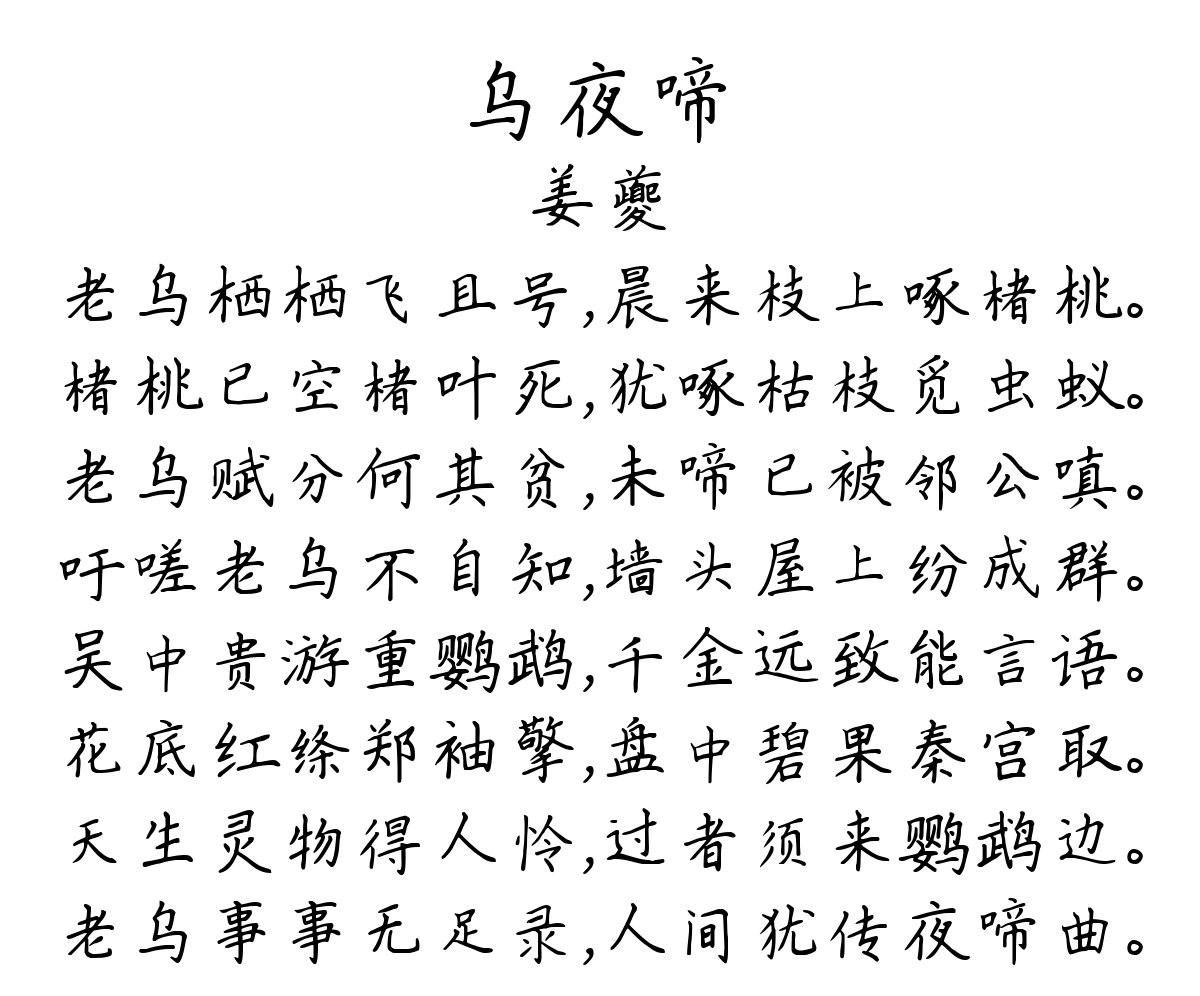 乌夜啼
姜夔
老乌栖栖飞且号,晨来枝上啄楮桃。
楮桃已空楮叶死,犹啄枯枝觅虫蚁。
老乌赋分何其贫,未啼已被邻公嗔。
吁嗟老乌不自知,墙头屋上纷成群。
吴中贵游重鹦鹉,千金远致能言语。
花底红绦郑袖擎,盘中碧果秦宫取。
天生灵物得人怜,过者须来鹦鹉边。
老乌事事无足录,人间犹传夜啼曲。